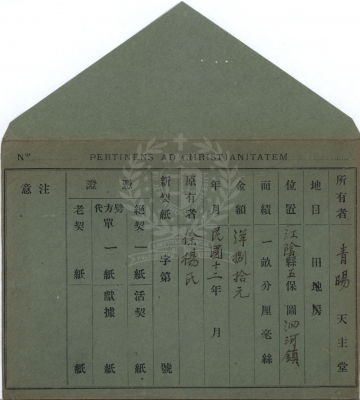 No.
PERTINENS AD CHRISTIANITATEM
所有者 青暘 天主堂
地目 田地房
位置 江陰縣五保圖泗河鎮
面積 一畝分厘毫絲
金額 洋捌拾元
年月 民國十二年 月
原有者 徐楊氏
新契紙 字第 號
證 絕契一紙 活契 紙
代方單 一紙 獻據 紙
老契 紙 紙
注意